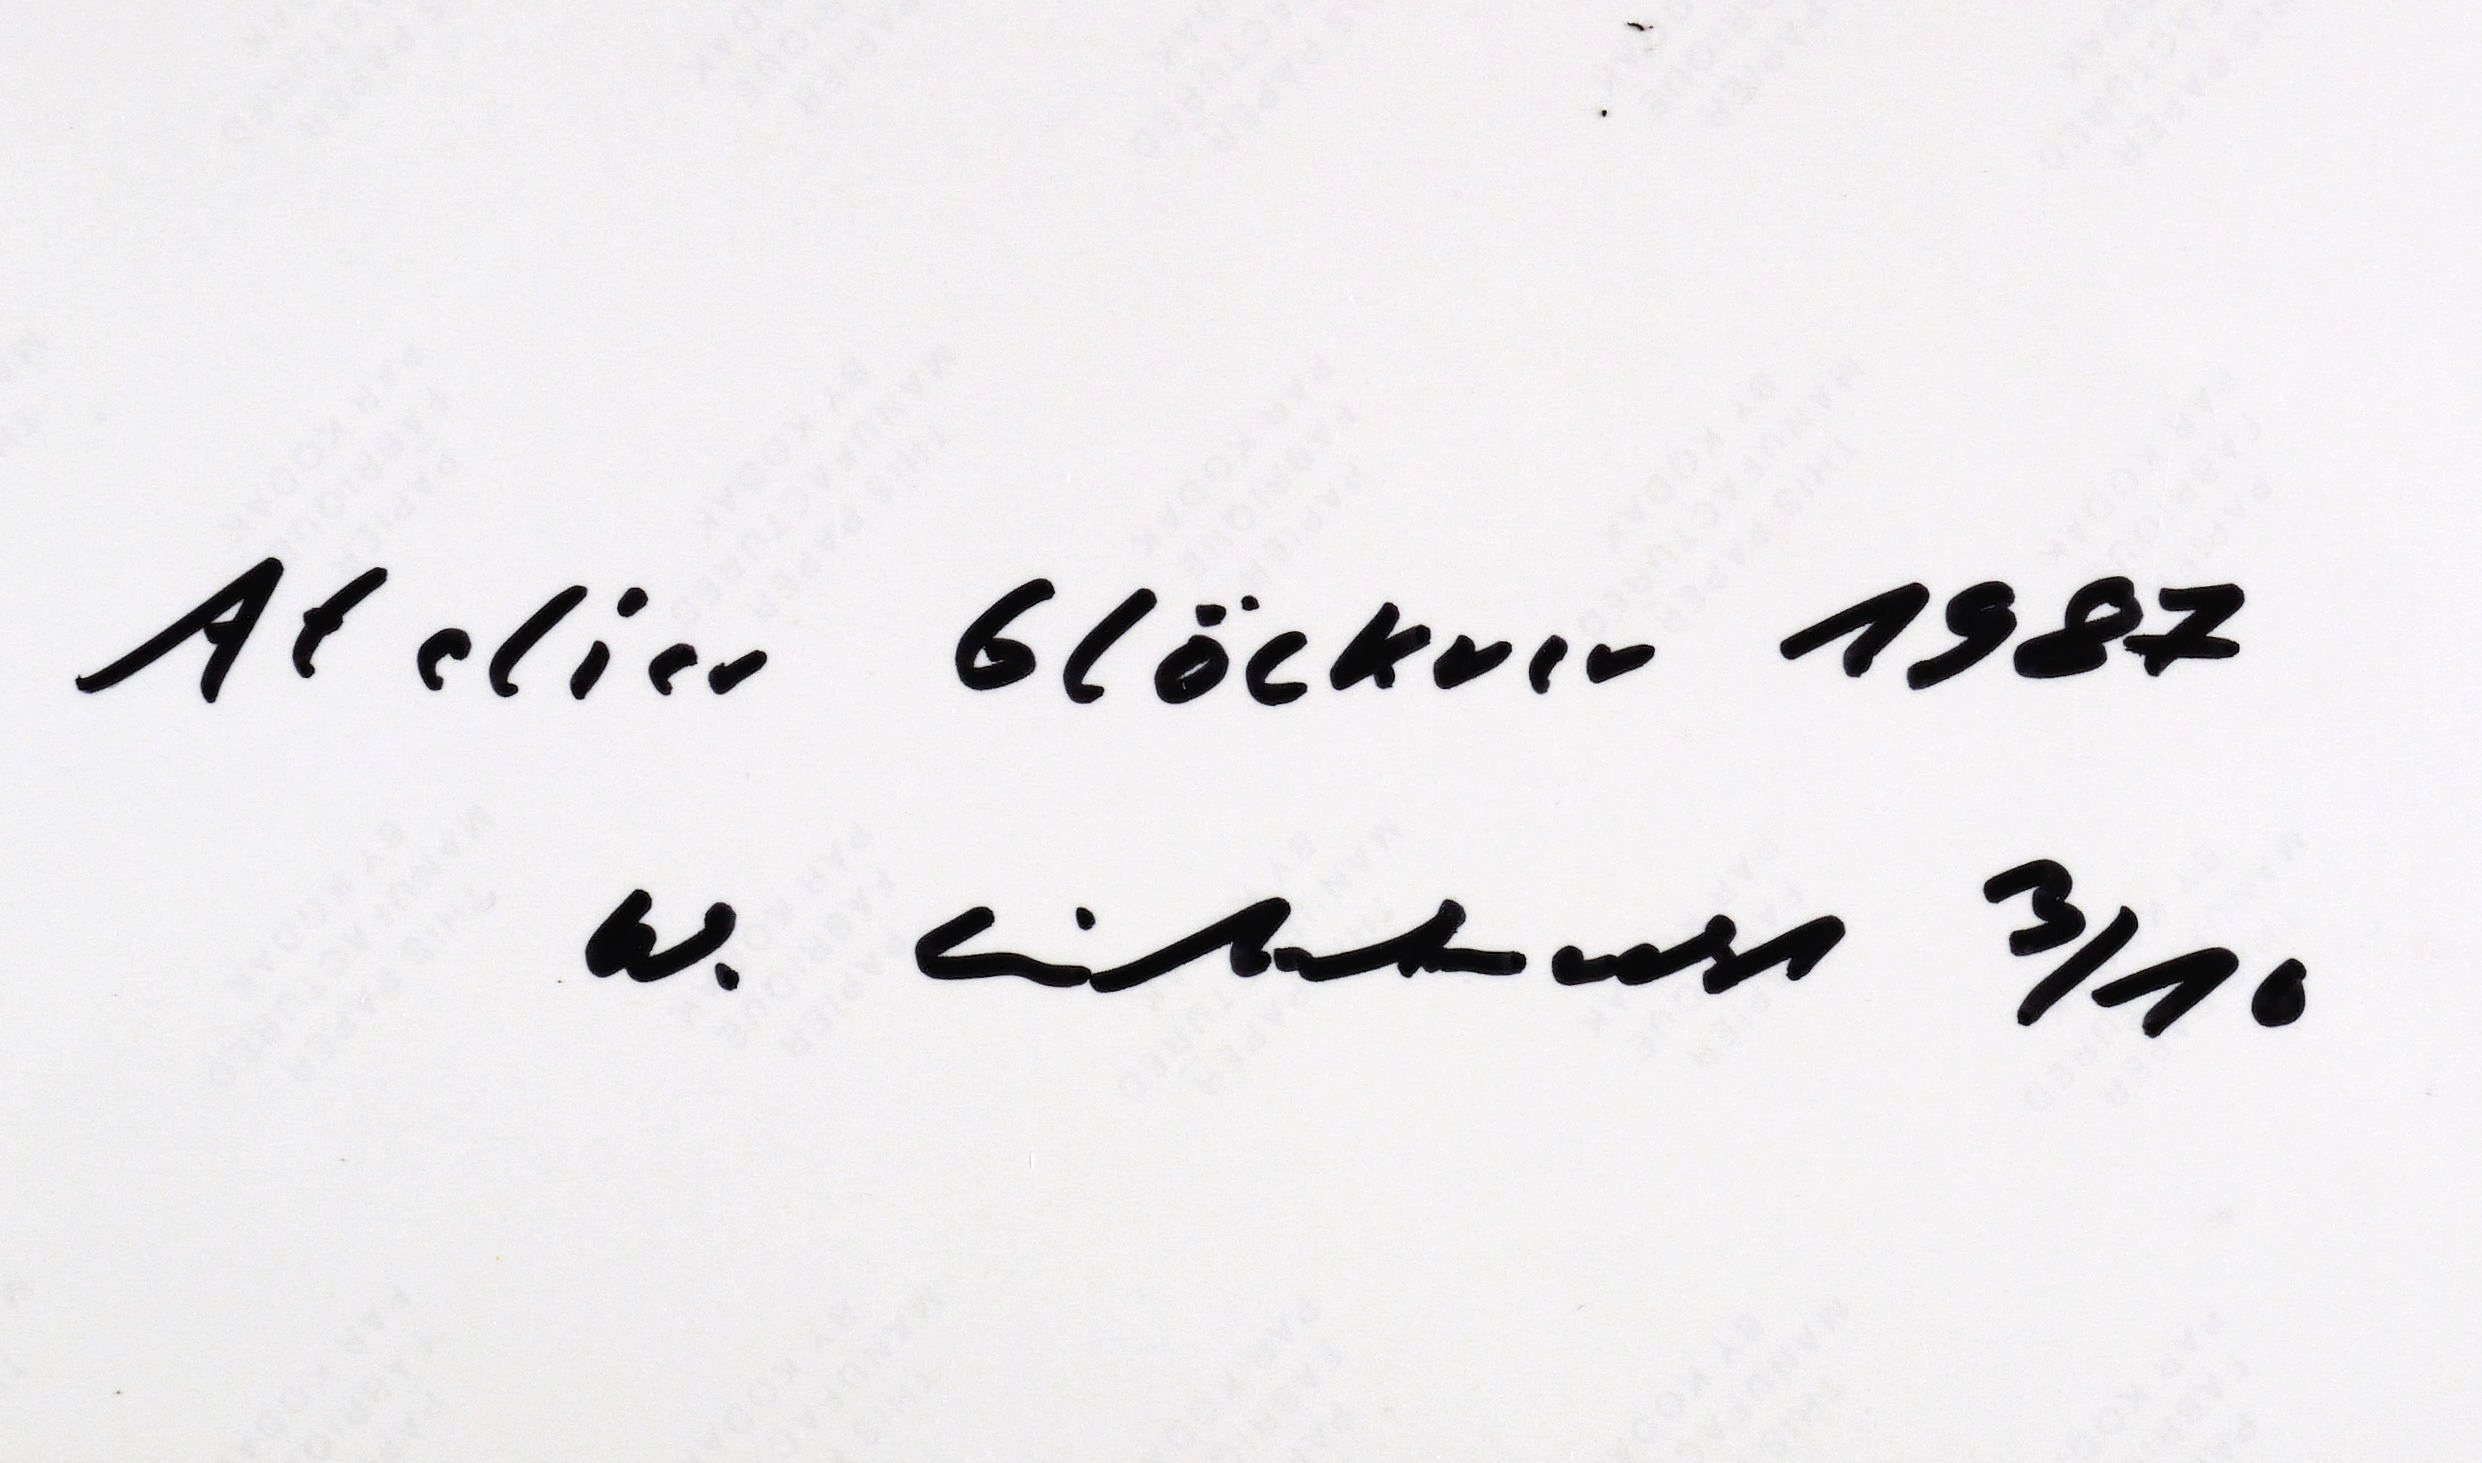 Atelier Glöckner 1987
W. 3/10
THIS PAPER
MANUFACTURED
BY KODAK
PAPIER
FABRIQUE
PAR KODAK